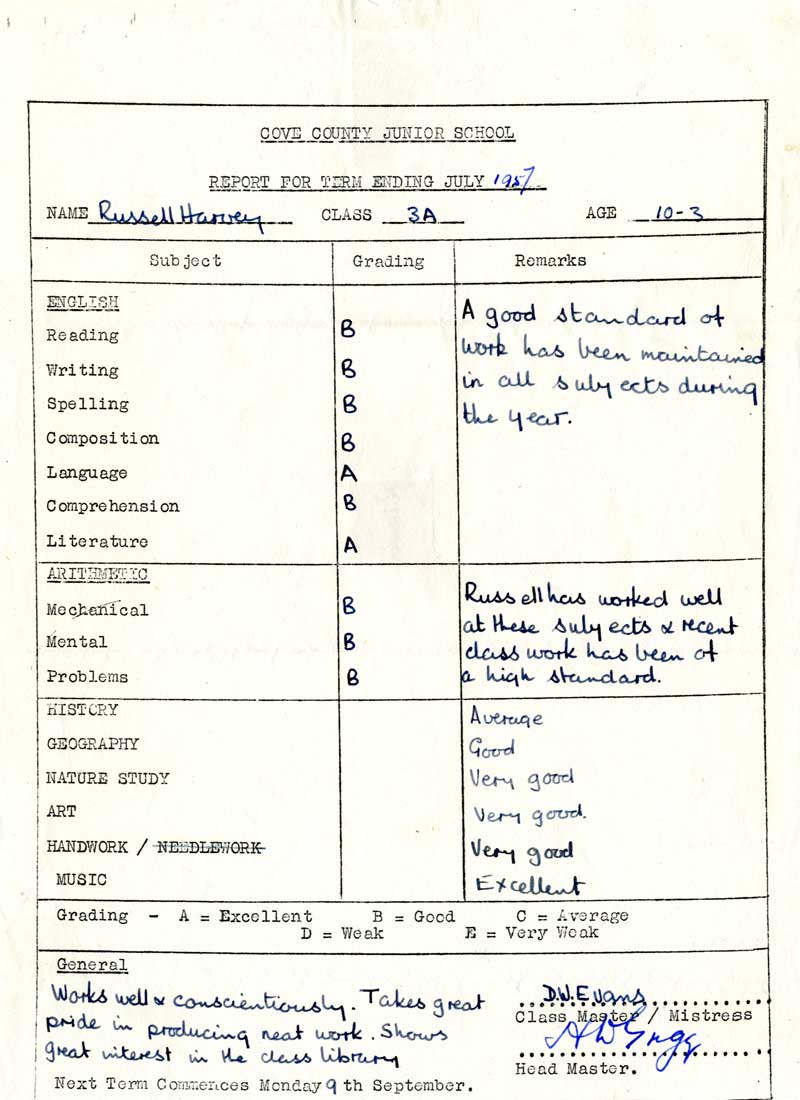 COVE COUNTY JUNIOR SCHOOL
REPORT FOR TERM ENDING JULY 1957.
NAME Russell Harvey CLASS 3A AGE 10-3
Subject Grading Remarks
ENGLISH
Reading B
Writing B
Spelling B
Composition B
Language A
Comprehension B
Literature A
A good standard of
work has been maintained
in all subjects during
the year.
ARITHMETIC
Mechanical B
Mental B
Problems B
Russell has worked well
at these subjects & recent
class work has been of
a high standard.
HISTORY Average
GEOGRAPHY Good
NATURE STUDY Very good
ART Very good.
HANDWORK / NEEDLEWORK Very good
MUSIC Excellent
Grading - A = Excellent B = Good C = Average
D = Weak E = Very Weak
General
Works well & conscientiously. Takes great
pride in producing neat work. Shows
great interest in the class library
D.W.Evans
Class Master / Mistress
Head Master.
Next Term Commences Monday 9 th September.